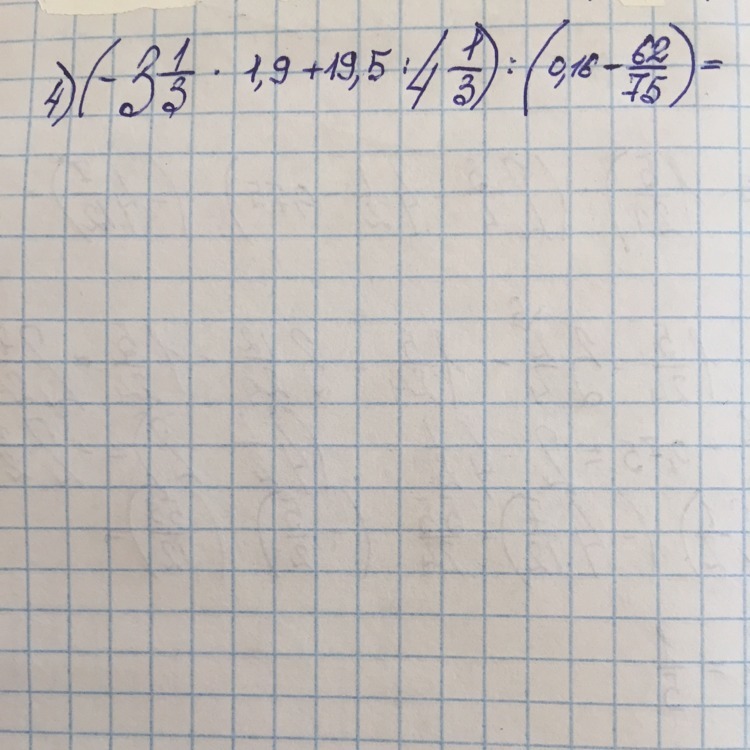 4) (-3 1/3 · 1,9 + 19,5 : 4 1/3) : (0,16 - 62/75) =